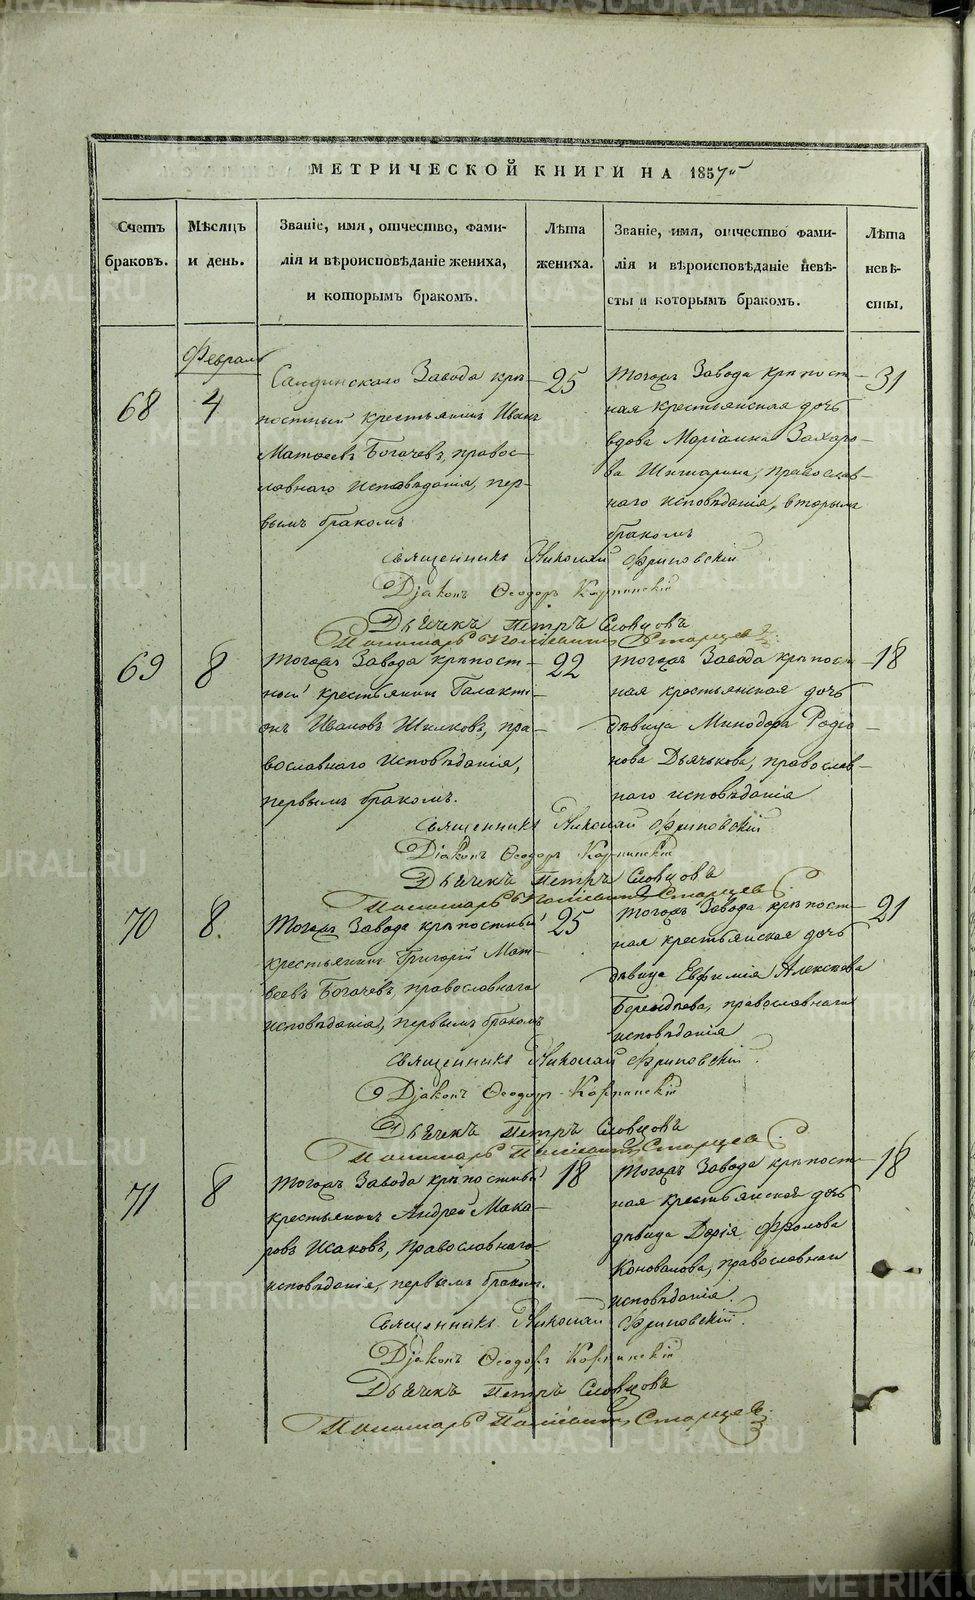 МЕТРИЧЕСКОЙ КНИГИ НА 1857й
Счетъ браковъ.
Мѣсяцъ и день.
Званіе, имя, отчество, фами-
лія и вѣроисповѣданіе жениха,
и которымъ бракомъ.
Лѣта жениха.
Званіе, имя, отчество фами-
лія и вѣроисповѣданіе невѣ-
сты и которымъ бракомъ.
Лѣта невѣ-
сты.
Февраль
68
4
Салдинскаго Завода крѣ-
постный крестьянинъ Иванъ
Матвеевъ Богачевъ, правос-
лавнаго исповѣданія, пер-
вымъ бракомъ
25
Тогожъ Завода крѣпост-
ная крестьянская дочь
вдова Маріамна Захаро-
ва Шишарина, православ-
наго исповѣданія, вторымъ
бракомъ
31
Священникъ Николай Фриновскій
Діаконъ Ѳеодоръ Карпинскій
Дьячекъ Петръ Словцовъ
Пономарь Старцевъ
69
8
Тогожъ Завода крѣпост-
ной крестьянинъ Галакті-
онъ Ивановъ Шилковъ, пра-
вославнаго исповѣданія,
первымъ бракомъ.
22
Тогожъ Завода крѣпост-
ная крестьянская дочь
дѣвица Минодора Родіо-
нова Дьячькова, православ-
наго исповѣданія
18
Священникъ Николай Фриновскій
Діаконъ Ѳеодоръ Карпинскій
Дьячекъ Петръ Словцовъ
Пономарь Старцевъ
70
8.
Тогожъ Завода крѣпостный
крестьянинъ Григорій Мат-
веевъ Богачевъ, православнаго
исповѣданія, первымъ бракомъ
25
Тогожъ Завода крѣпост-
ная крестьянская дочь
дѣвица Евфимія Алексѣева
Берендѣева, православнаго
исповѣданія
21
Священникъ Николай Фриновскій
Діаконъ Ѳеодоръ Карпинскій
Дьячекъ Петръ Словцовъ
Пономарь Старцевъ
71
8
Тогожъ Завода крѣпостный
крестьянинъ Андрей Мака-
ровъ Исаковъ, православнаго
исповѣданія, первымъ бракомъ.
18
Тогожъ Завода крѣпост-
ная крестьянская дочь
дѣвица Дарія Фролова
Коновалова, православнаго
исповѣданія.
18
Священникъ Николай Фриновскій
Діаконъ Ѳеодоръ Карпинскій
Дьячекъ Петръ Словцовъ
Пономарь Старцевъ
METRIKI.GASO-URAL.RU